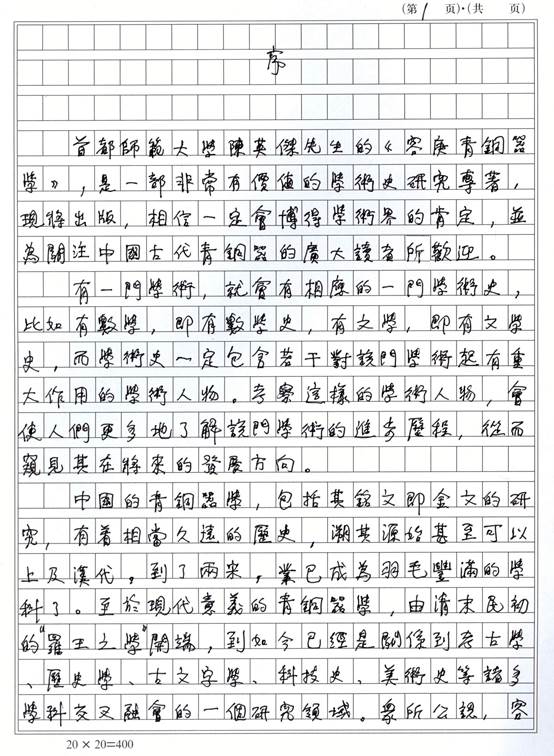 (第1页)·(共 页)
序
首都師範大學陳英傑先生的《容庚青銅器
學》，是一部非常有價值的學術史研究專著，
現將出版，相信一定會博得學術界的肯定，並
為關注中國古代青銅器的廣大讀者所歡迎。
有一門學術，就會有相應的一門學術史，
比如有數學，即有數學史，有文學，即有文學
史，而學術史一定包含若干對該門學術起有重
大作用的學術人物。考察這樣的學術人物，會
使人們更多地了解該門學術的進步歷程，從而
窺見其在將來的發展方向。
中國的青銅器學，包括其銘文即金文的研
究，有着相當久遠的歷史，溯其源始甚至可以
上及漢代。到了兩宋，業已成為羽毛豐滿的學
科了。至於現代意義的青銅器學，由清末民初
的"羅王之學"開端，到如今已經是關係到考古學
、歷史學、古文字學、科技史、美術史等諸多
學科交叉融會的一個研究領域。衆所公認，容
20×20=400